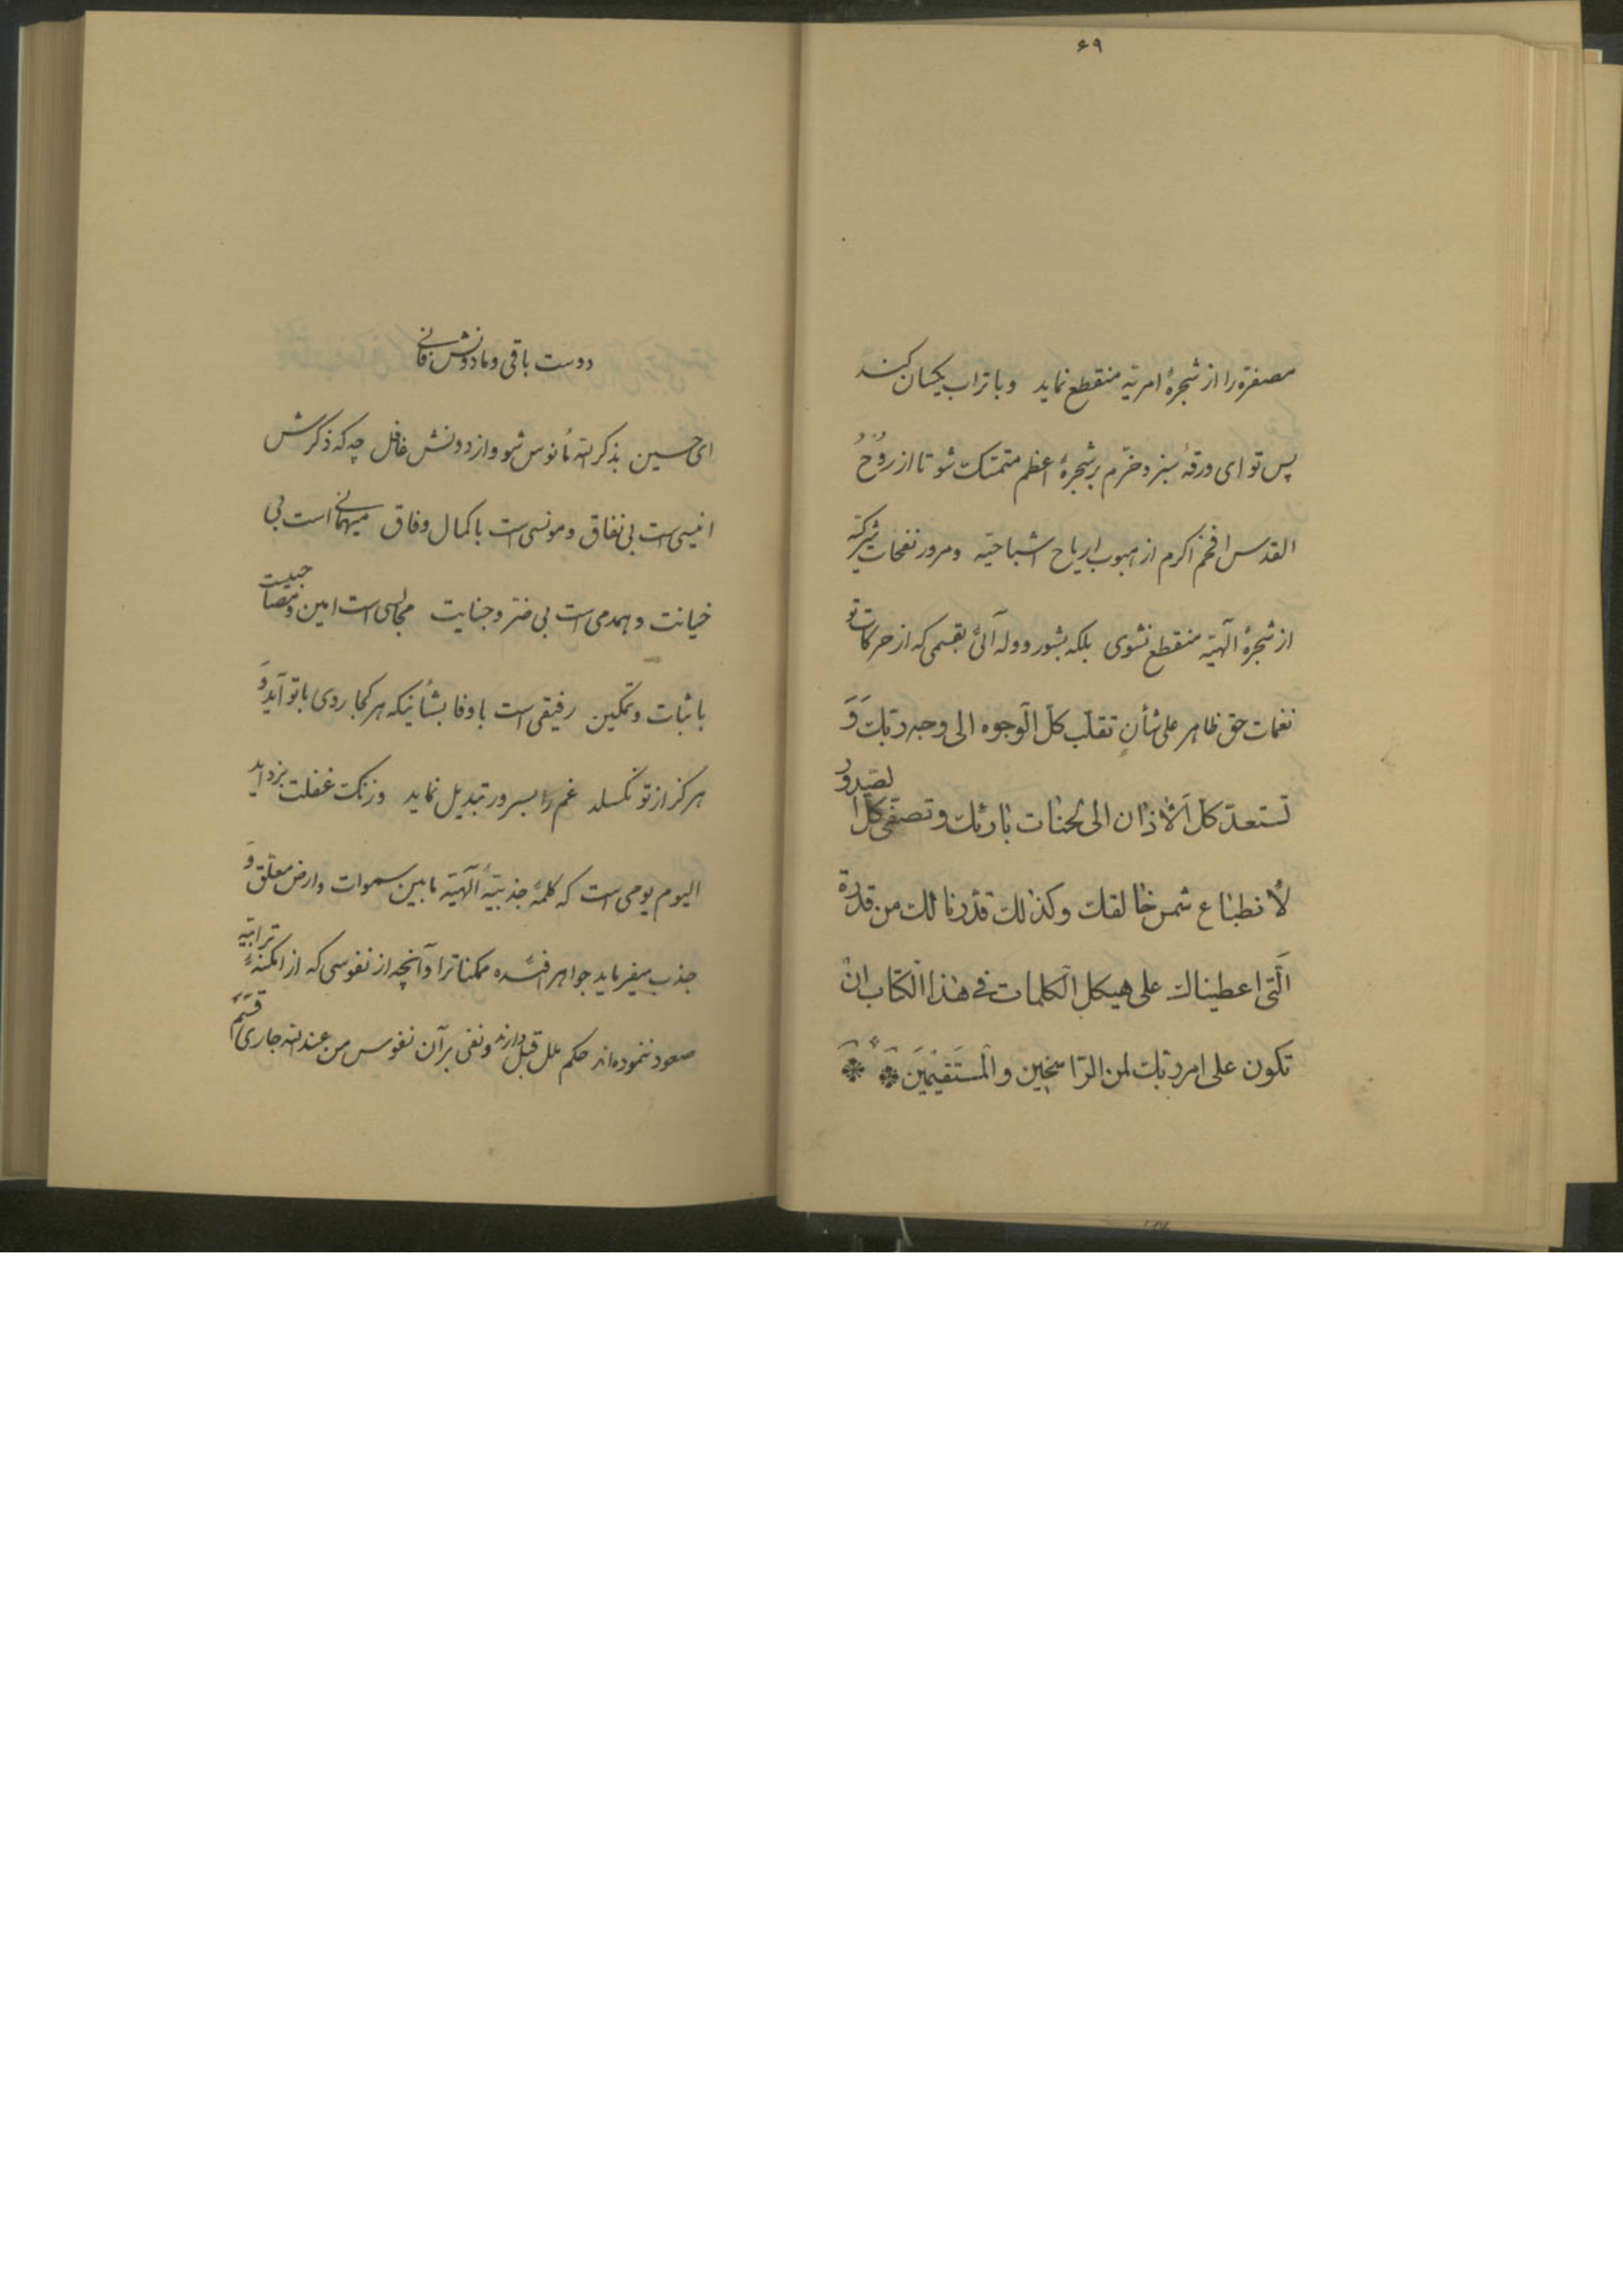 ۶۹
مصفرّه را از شجرهٔ امریّه منقطع نماید و با تراب یکسان کند
پس تو ای ورقهٔ سبز و خرّم بر شجرهٔ اعظم متمسّک شو تا از روُحُ
القدس افخم اکرم از هبوب اریاح اشباحیّه و مرور نفحات شرکیّه
از شجرهٔ الهیّه منقطع نشوی بلکه بشور و وله آئی بقسمی که از حرکات تو
نغمات حق ظاهر علی شأنٍ تقلّب کلّ الوجوه الی وجه ربّک وَ
تستعدّ کلّ الأذان الی لحنات بارئک و تصفّی کلّ الصّدور
لأنطباع شمس خالقک و کذلک قدّرنا لک من قدرة
الّتی اعطیناک علی هیکل الکلمات فی هذا الکتاب ان
تکون علی امر ربّک لمن الرّاسخین و المستقیمین
دوست باقی و مادونش فانی
ای حسین بذکر الله مأنوس شو و از دونش غافل چه که ذکرش
انیسی است بی نفاق و مونسی است با کمال وفاق میهمانی است بی
خیانت و همدمی است بی ضرّ و جنایت مجالسی است امین و مصاحبیست
با ثبات و تمکین رفیقی است با وفا بشأنیکه هر کجا روی با تو آید وَ
هرگز از تو نگسلد غم را بسرور تبدیل نماید و زنگ غفلت بزداید
الیوم یومی است که کلمهٔ جذبیّهٔ الهیّه ما بین سموات و ارض معلّق وَ
جذب میفرماید جواهر افئدهٔ ممکنات را و آنچه از نفوسی که از امکنهٔ ترابیّه
صعود ننموده‌اند حکم ملل قبل دارند و نفی بر آن نفوس من عند الله جاری قسم